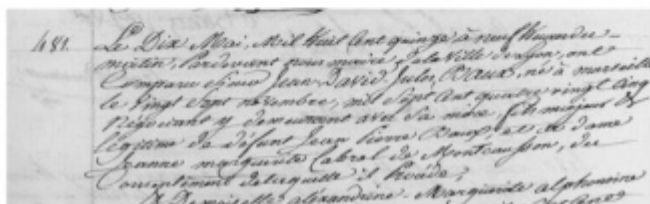 481. Le Dix Mai, Mil Huit Cent quinze à neuf heures du
matin, Pardevant nous maire de la Ville de Lyon, ont
Comparu sieur Jean David Jules Baux, né à marseille
le vingt sept novembre, mil sept Cent quatre vingt Cinq
Négociant y demeurant avec sa mère, fils majeur &
légitime de défunt Jean Pierre Baux, et de dame
Jeanne marguerite Cabrol de Montcausson, du
Consentement de laquelle il Procède;
Demoiselle alexandrine Marguerite alphonsine